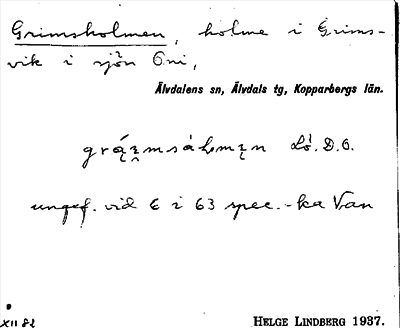 Grimsholmen, holme i Grims-
vik i sjön Oni,
Älvdalens sn, Älvdals tg, Kopparbergs län.
L. D. O.
ungef. vid E i 63 spec. -ka Van
XII 82
HELGE LINDBERG 1937.